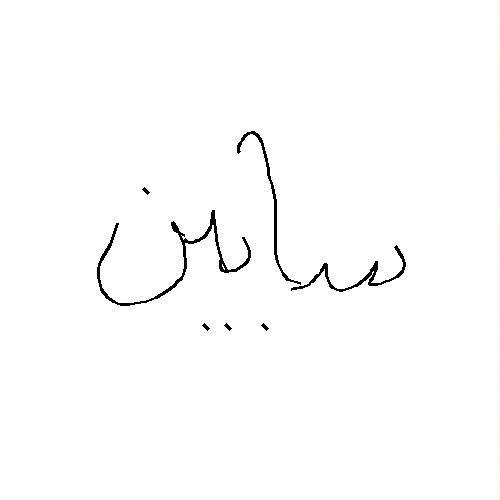 سابين